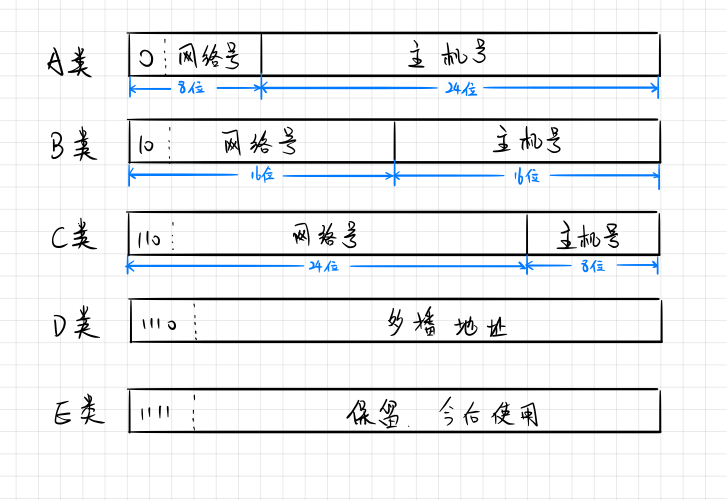 A类 0 网络号 主机号
8位 24位
B类 10 网络号 主机号
16位 16位
C类 110 网络号 主机号
24位 8位
D类 1110 多播地址
E类 1111 保留. 今后使用